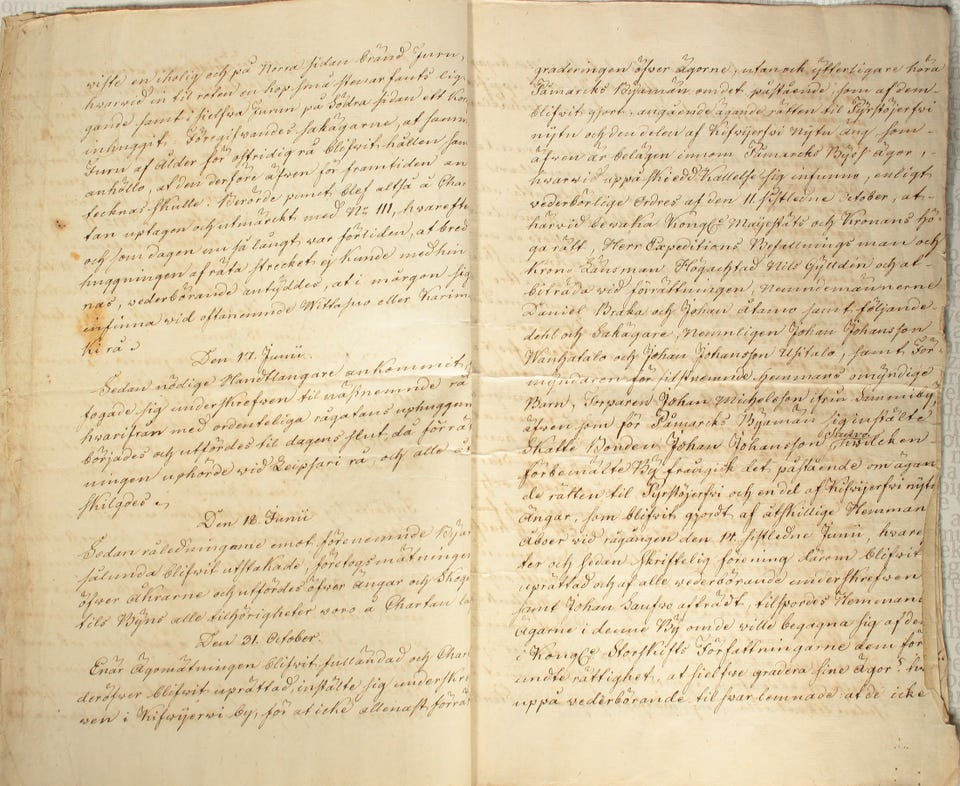 wiste en iholig och på Norra sidan bränd Furu,
hwarwid in til roten en hop små stenar funts lig
gande samt i sielfwa furun på Södra sidan ett Kors
inhuggit. Föregifvandes sakägarne, at samma
Furu af ålder för ostridig rå blifwit hållen samt
anhöllo, at den derföre äfwen för framtiden an
tecknas skulle. Berörde punct blef altså å Char
tan uptagen och utmärckt med No 111, hwarefter
och som dagen nu så långt war förliden, at
huggningen af räta strecket ej kunde medhin
nas, wederbörande antyddes, at i morgon sig
infinna wid oftanemnde Wittasuo eller Karim
ki rå.
Den 17. Junii.
Sedan nödige Handtlangare ankommit,
fogade sig underskrefwen til näßnemnde rå
hwarifrån med ordenteliga rågatans uphuggning
börjades och utfördes til dagens slut, då förrätt
ningen uphörde wid Leipsari rå, och alle åt
skilgdes.
Den 18. Junii
Sedan råledningarne emot förenemnde Byar
sålunda blifwit utstakade, företogs mätningen
öfver åkrarne och utfördes öfver ängar och Skogar
tils Byns alle tilhörigheter voro å Chartan
Den 31. October.
Enär Ägomätningen blifwit fulländad och Char
deröfver blifwit uprättad, instälte sig underskref
wen i Kifwijerwi by, för at icke allenast förrätta
graderingen öfver ägorne, utan ock ytterligare höra
Såmarcks Byamän om det påstående, som af dem
blifwit gjort, angående ägande rätten til Pyrstöjerfwi
nytu och den delen af Kifwijerfwi Nytu äng som
äfven är belägen innom Såmarcks Bys ägor,
hwarwid uppå skiedd Kallelse sig infunno, enligt
wederbörlige Ordres af den 11. sistledne October, at
härvid bevaka Kongl. Majestäts och Kronans Hö
ga rätt, Herr Expeditions Befallningsman och
Krono Länsman Högachtad Nils Gyldén och at
biträda vid förrättningen, Nemndemännerne
Daniel Braka och Johan åtamo samt följande
dehl och Sakägare, Nemnligen Johan Johansson
Wanhatalo och Johan Johansson Usitalo, samt För
myndaren för silstnemnde Hemmans omyndige
Barn, Torparen Johan Michelsson ifrån Dammby,
äfven som för Såmarcks Byamän sig instälte
Skatte Bonden Johan Johansson Saufwo, wilcken
förbemälte By frångick det påstående om ägan
de rätten til Pyrstöjerfwi och en del af Kifwijerfwi nytu
Ängar, som blifwit gjordt af åtskillige Hemman
åboer vid rågången den 14. sistledne Junii, hvar
ter och sedan skriftelig förening därom blifwit
uprättad och af alle wederbörande underskrefwen
samt Johan Saufwo afträdt, tilspordes Hemmans
Ägarne i denne By om de wille begagna sig af den
i Kongl. Storskifts Författningarne dem för
undte rättighet, at sielfve gradera sine Ägor?
uppå wederbörande til svar lemnade at de icke